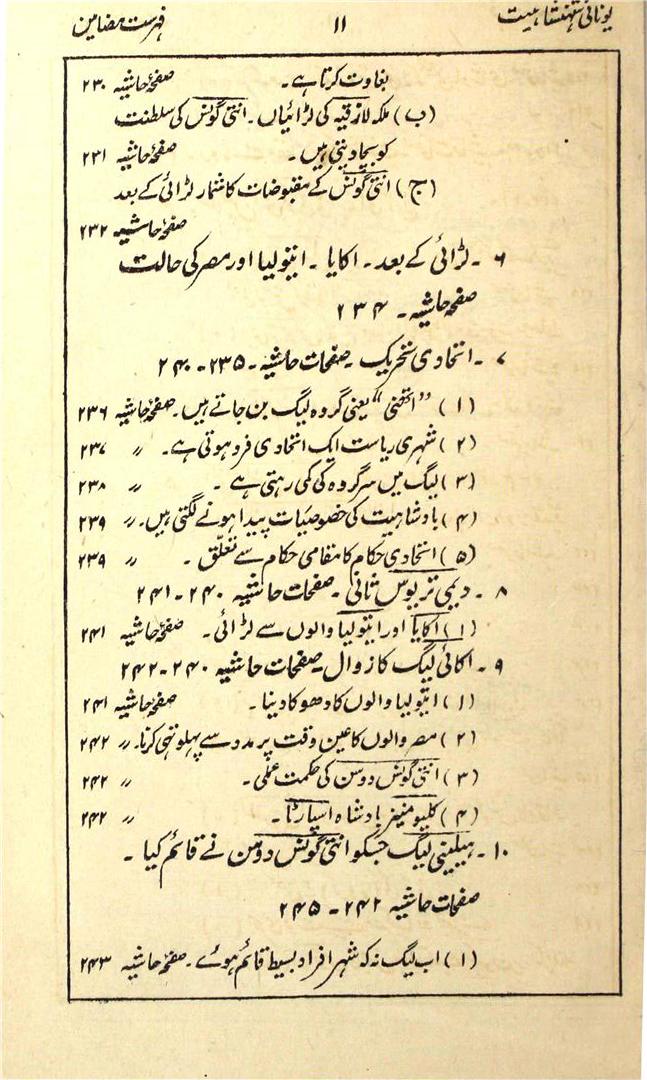 یونانی شہنشاہیت ۱۱ فہرست مضامین
بغاوت کرتا ہے۔ صفحۂ حاشیہ ۲۳۰
(ب) ملکہ لازقیہ کی لڑائیاں۔ انتی گونس کی سلطنت
کو بچا دیتی ہیں۔ صفحۂ حاشیہ ۲۳۱
(ج) انتی گونس کے مقبوضات کا شمار لڑائی کے بعد
صفحۂ حاشیہ ۲۳۲
۶ ۔ لڑائی کے بعد ۔ اکایا ۔ ایتولیا اور مصر کی حالت
صفحۂ حاشیہ ۔ ۲۳۴
۷ ۔ اتحادی تحریک ۔ صفحات حاشیہ ۔ ۲۳۵ ۔ ۲۴۰
(۱) ”اتھنی“ یعنی گروہ لیگ بن جاتے ہیں۔ صفحۂ حاشیہ ۲۳۶
(۲) شہری ریاست ایک اتحادی فرد ہوتی ہے۔ 〃 ۲۳۷
(۳) لیگ میں سرگروہ کی کمی رہتی ہے ۔ 〃 ۲۳۸
(۴) بادشاہیت کی خصوصیات پیدا ہونے لگتی ہیں۔ 〃 ۲۳۹
(۵) اتحادی حکام کا مقامی حکام سے تعلق ۔ 〃 ۲۳۹
۸ ۔ دیمی تریوس ثانی ۔ صفحات حاشیہ ۲۴۰ ۔ ۲۴۱
(۱) اکایا اور ایتولیا والوں سے لڑائی۔ صفحۂ حاشیہ ۲۴۱
۹ ۔ اکائی لیگ کا زوال ۔ صفحات حاشیہ ۲۴۰ ۔ ۲۴۲
(۱) ایتولیا والوں کا دھوکا دینا ۔ صفحۂ حاشیہ ۲۴۱
(۲) مصر والوں کا عین وقت پر مدد سے پہلو تہی کرنا۔ 〃 ۲۴۲
(۳) انتی گونس دوسن کی حکمت عملی۔ 〃 ۲۴۲
(۴) کلیومنیز بادشاہ اسپارٹا ۔ 〃 ۲۴۲
۱۰ ۔ ہیلینی لیگ جسکو انتی گونس دوسن نے قائم کیا ۔
صفحات حاشیہ ۲۴۲ ۔ ۲۴۵
(۱) اب لیگ نہ کہ شہر افراد بسیط قائم ہوئے ۔ صفحۂ حاشیہ ۲۴۳